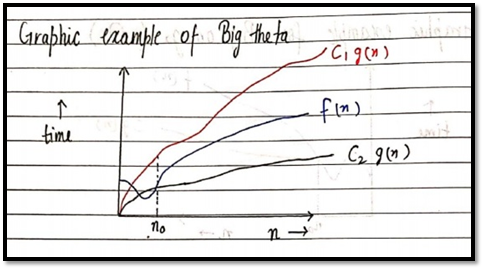 Graphic example of Big theta
C₁ g(n)
↑
time
f(n)
C₂ g(n)
n₀
n →